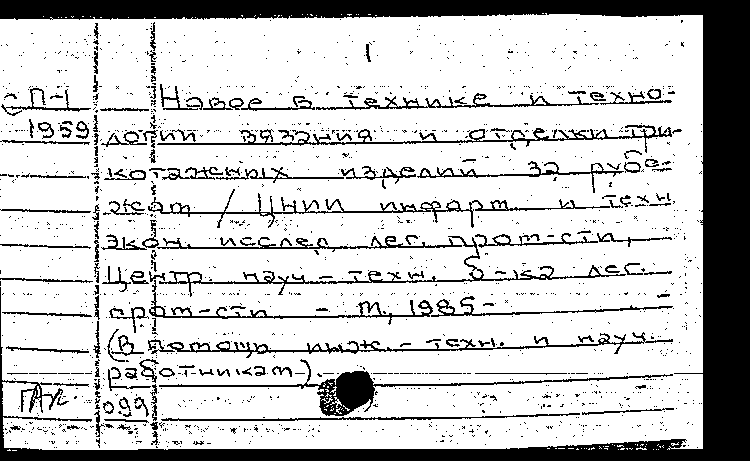 1
С П-1 Новое в технике и техно-
1959 логии вязания и отделки три-
котажных изделий за рубе-
жом / ЦНИИ информ. и техн
экон. исслед. лег. пром-сти,
Центр. науч-техн. б-ка лег.
пром-сти. - М, 1985 -
(В помощь инж.-техн. и науч.
работникам).
099